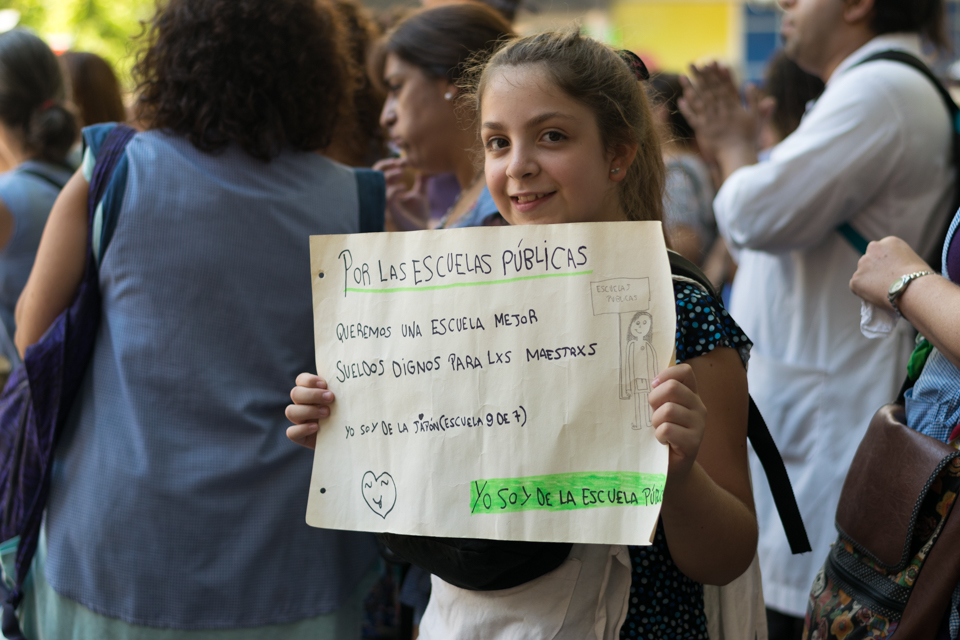 POR LAS ESCUELAS PÚBLICAS
ESCUELAS
PUBLICAS
QUEREMOS UNA ESCUELA MEJOR
SUELDOS DIGNOS PARA LXS MAESTRXS
YO SOY DE LA JAPÓN (ESCUELA 9 DE 7)
YO SOY DE LA ESCUELA PÚBL